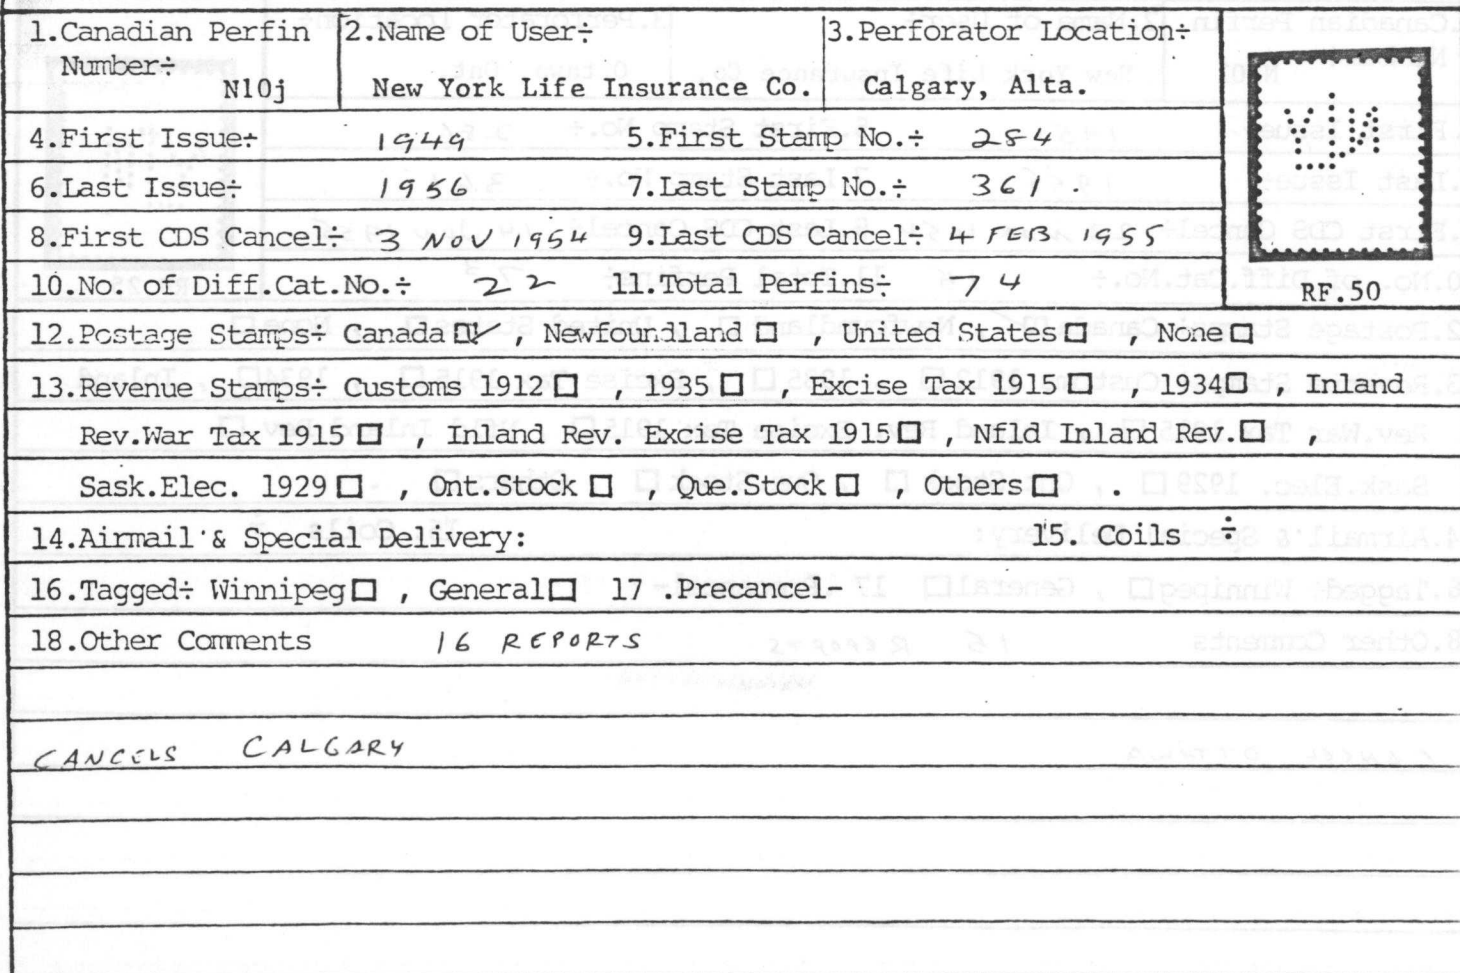 1.Canadian Perfin Number÷ N10j
2.Name of User÷ New York Life Insurance Co.
3.Perforator Location÷ Calgary, Alta.
4.First Issue÷ 1949 5.First Stamp No.÷ 284
6.Last Issue÷ 1956 7.Last Stamp No.÷ 361.
8.First CDS Cancel÷ 3 NOV 1954 9.Last CDS Cancel÷ 4 FEB 1955
10.No. of Diff.Cat.No.÷ 22 11.Total Perfins÷ 74
RF.50
12.Postage Stamps÷ Canada ☑ , Newfoundland ☐ , United States ☐ , None ☐
13.Revenue Stamps÷ Customs 1912 ☐ , 1935 ☐ , Excise Tax 1915 ☐ , 1934 ☐ , Inland
Rev.War Tax 1915 ☐ , Inland Rev. Excise Tax 1915 ☐ , Nfld Inland Rev. ☐ ,
Sask.Elec. 1929 ☐ , Ont.Stock ☐ , Que.Stock ☐ , Others ☐ .
14.Airmail & Special Delivery: 15. Coils ÷
16.Tagged÷ Winnipeg ☐ , General ☐ 17 .Precancel-
18.Other Comments 16 REPORTS
CANCELS CALGARY